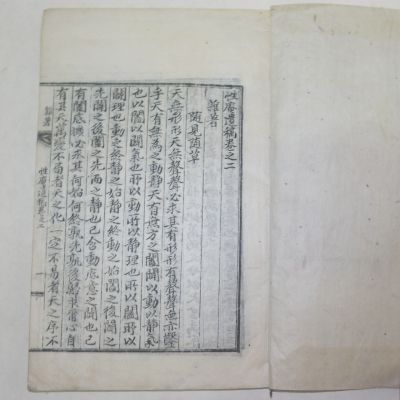 性庵遺稿卷之二
雜著
隨見随草
天無形形天無聲聲必求其有形形有聲聲無亦鑿
乎天有無爲之動静天有無方之闔闢以動以静氣
也以闔以闢氣也所以動所以静理也所以闔所以
闢理也動之終静之始静之終動之始闔之後闢之
先闢之後闔之先而静也已含動底意之闢也已
有闔底機必求其何始何終孰先孰後祭其心自
有其天萬變不窮者天之化一定不易者天之序不
雜著
性庵遺稿卷之二
一